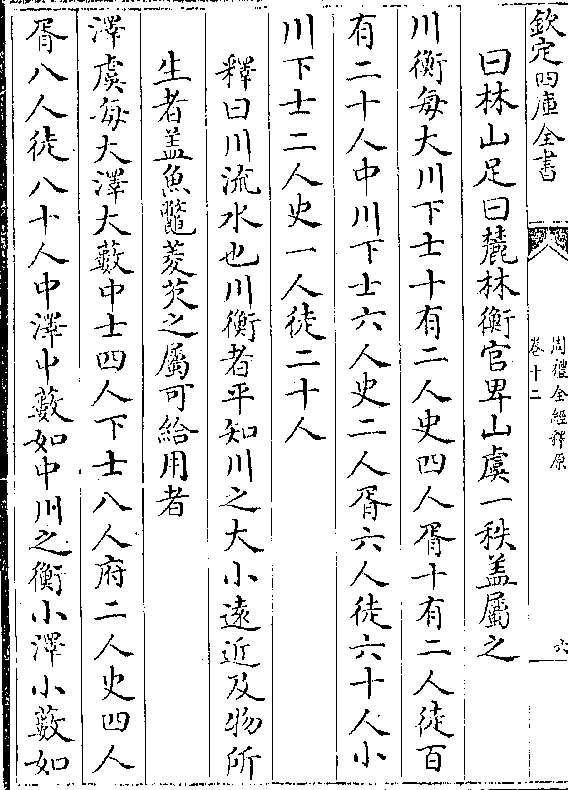 欽定四庫全書
周禮全經釋原
卷十二
六
曰林山足曰麓林衡官畀山虞一秩盖屬之
川衡每大川下士十有二人史四人胥十有二人徒百
有二十人中川下士六人史二人胥六人徒六十人小
川下士二人史一人徒二十人
釋曰川流水也川衡者平知川之大小遠近及物所
生者盖魚鼈菱芡之屬可給用者
澤虞每大澤大藪中士四人下士八人府二人史四人
胥八人徒八十人中澤中藪如中川之衡小澤小藪如